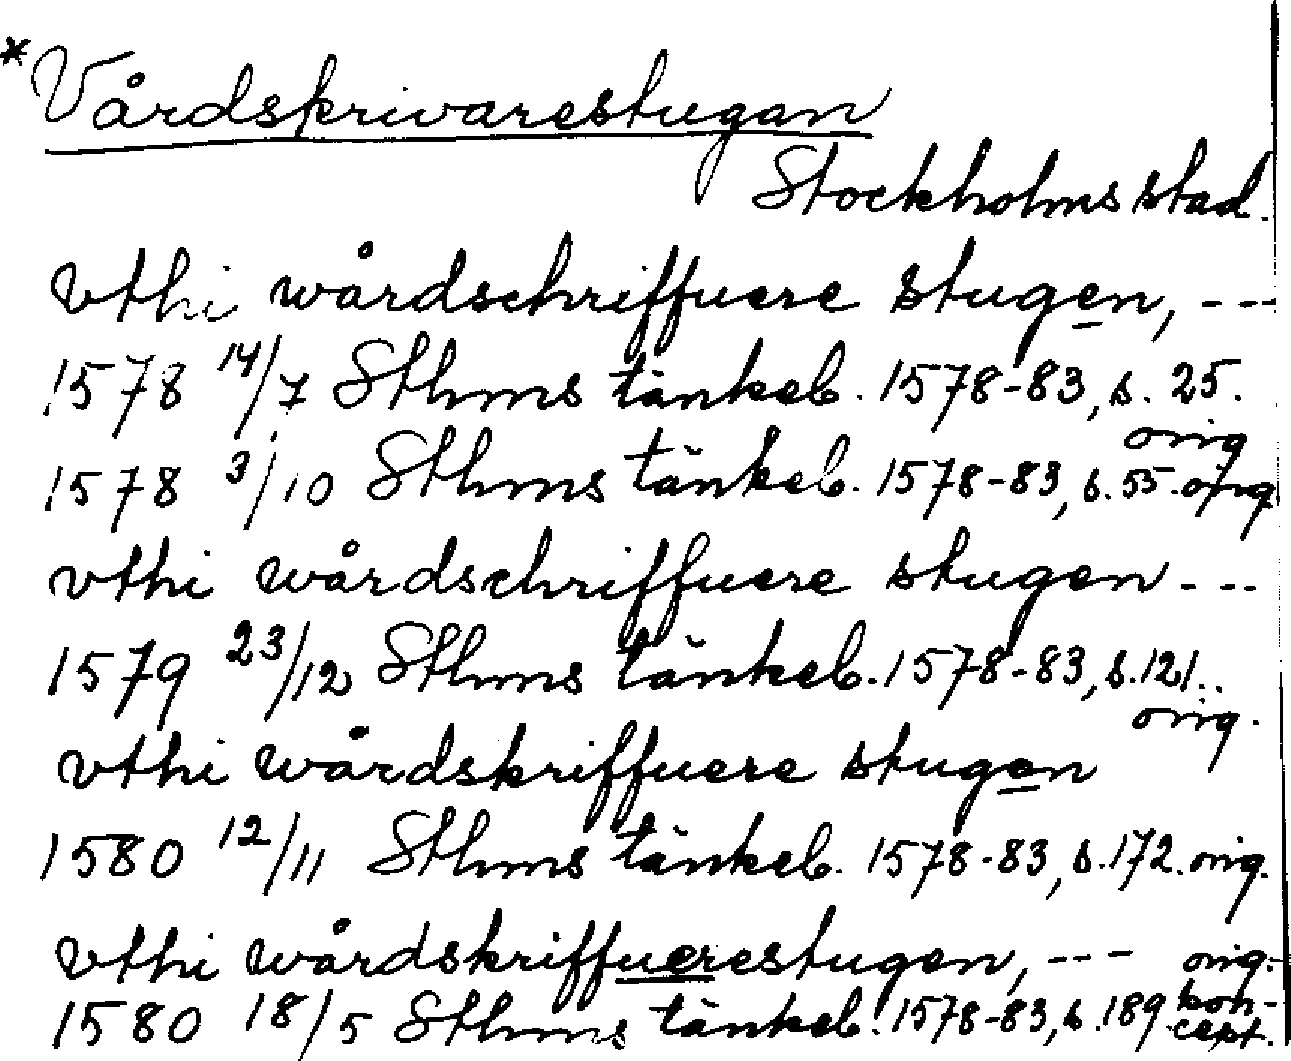 *Vårdskrivarestugan
Stockholms stad.
vthi wårdschriffuere stugen, ---
1578 14/7 Sthms tänkeb. 1578-83, s. 25.
orig
1578 3/10 Sthms tänkeb. 1578-83, s. 55. orig.
vthi wårdschriffuere stugen ---
1579 23/12 Sthms tänkeb. 1578-83, s. 121..
orig.
vthi wårdskriffuere stugen
1580 12/11 Sthms tänkeb. 1578-83, s. 172. orig.
vthi wårdskriffuerestugen, --- orig.
1580 18/5 Sthms tänkeb. 1578-83, s. 189 kon-
cept.